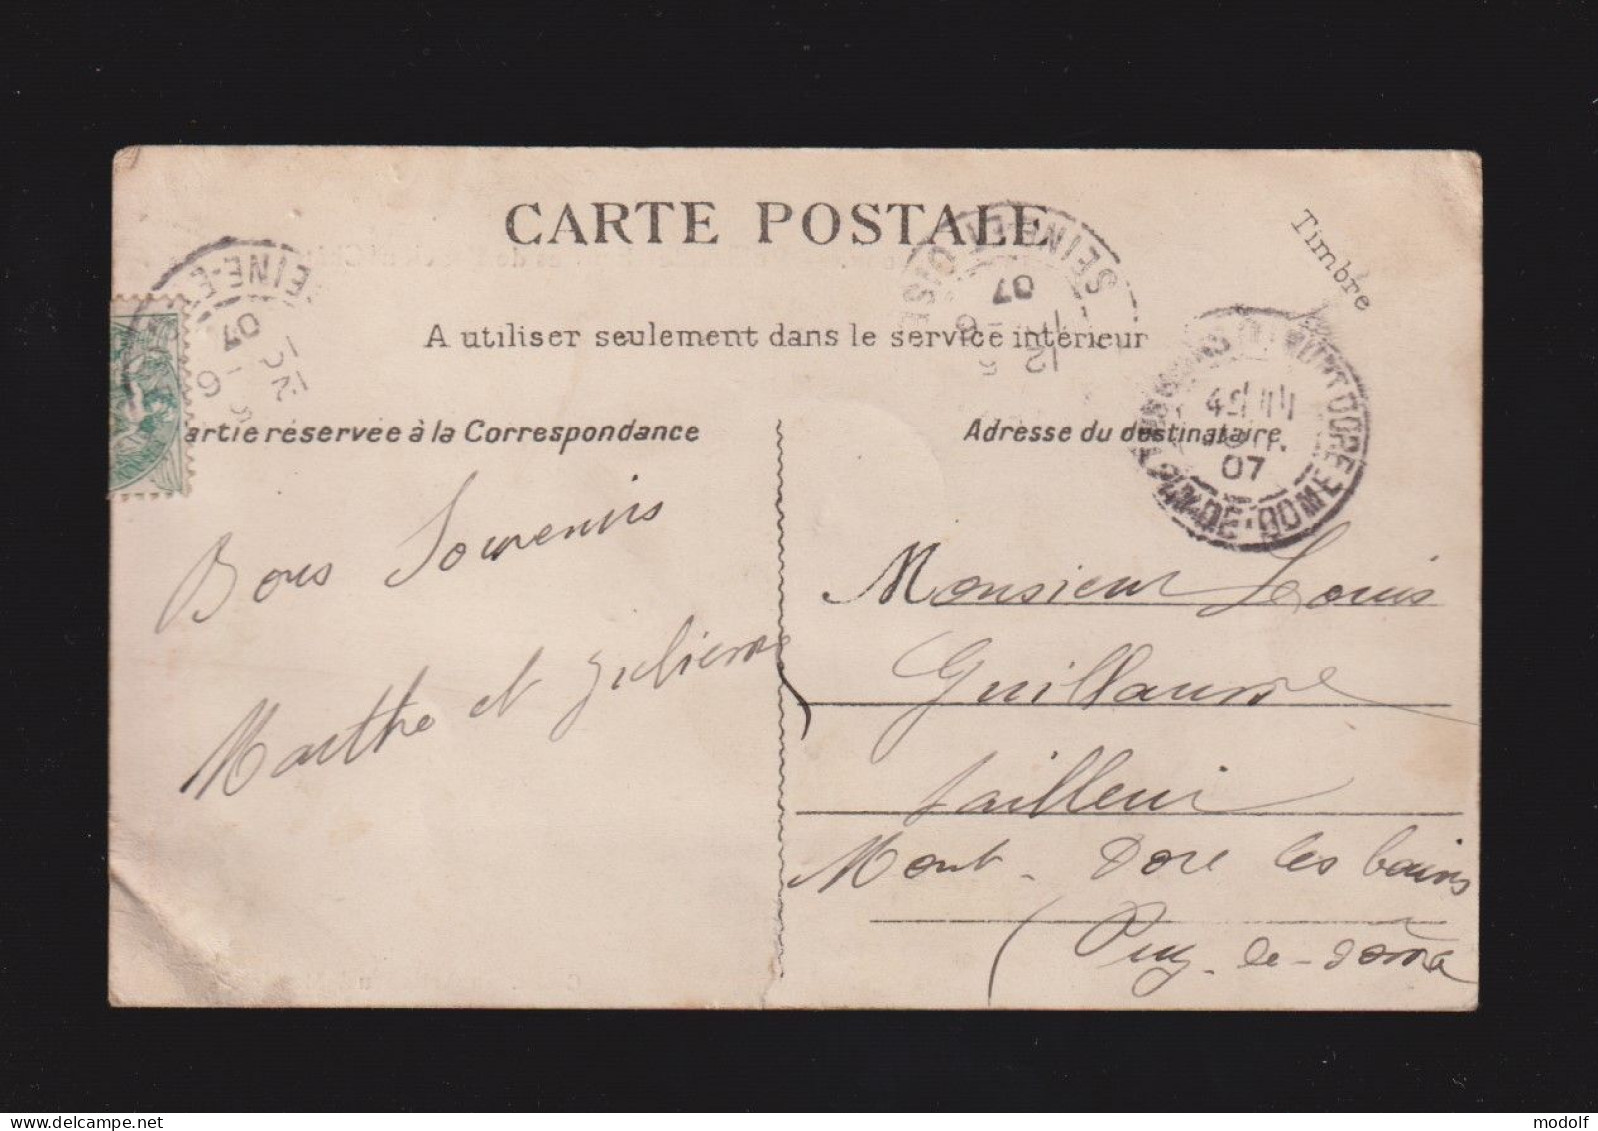 CARTE POSTALE
Timbre
A utiliser seulement dans le service intérieur
SEINE-ET-OISE
07
12
6
EINE-E
07
12
6
artie réservée à la Correspondance
Adresse du destinataire
MONT DORE
07
PUY-DE-DOME
Bons Souvenirs
Marthe et Julienne
Monsieur Louis
Guillaume
tailleur
Mont-Dore les bains
(Puy-de-Dôme
modolf